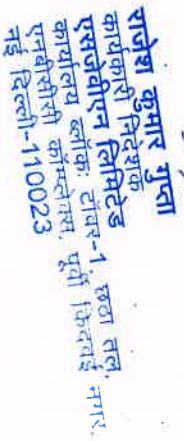 राजेश कुमार गुप्ता
कार्यकारी निदेशक
एसजेवीएन लिमिटेड
कार्यालय ब्लॉक: टावर-1, छठा तल,
एनबीसीसी कॉम्प्लेक्स, पूर्वी किदवई नगर,
नई दिल्ली-110023